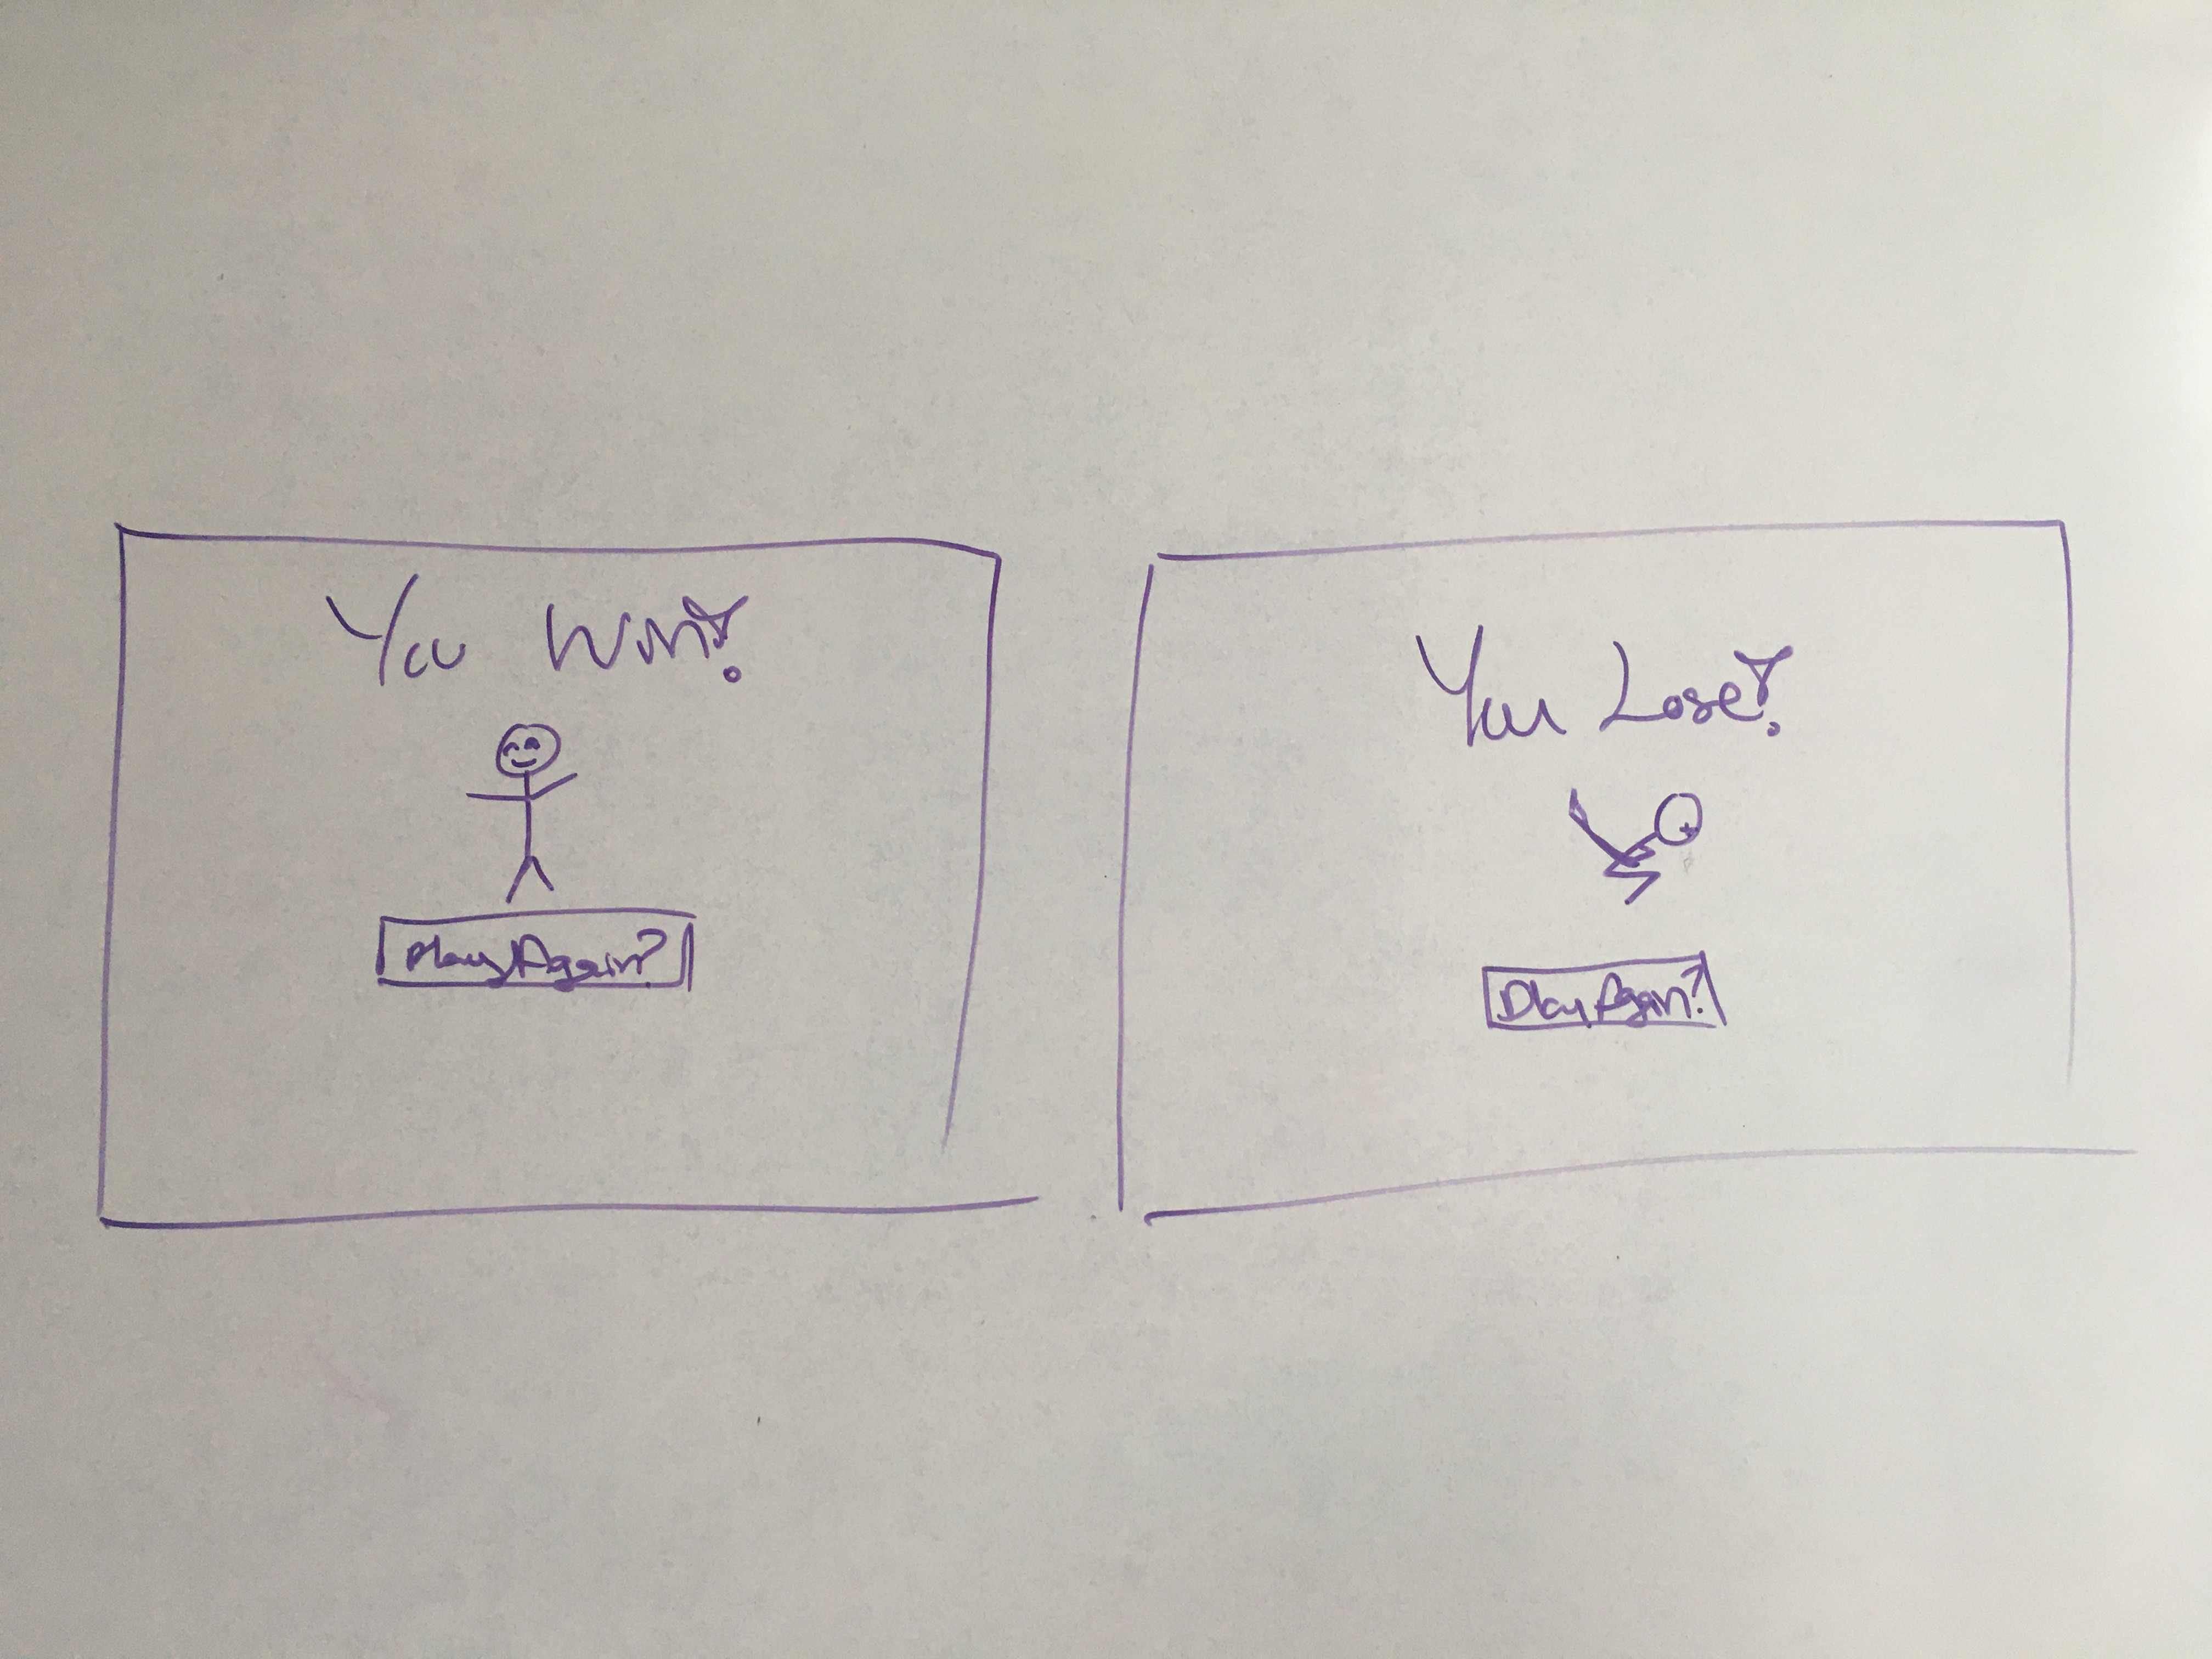 You Won!
Play Again?
You Lose!
Play Again?